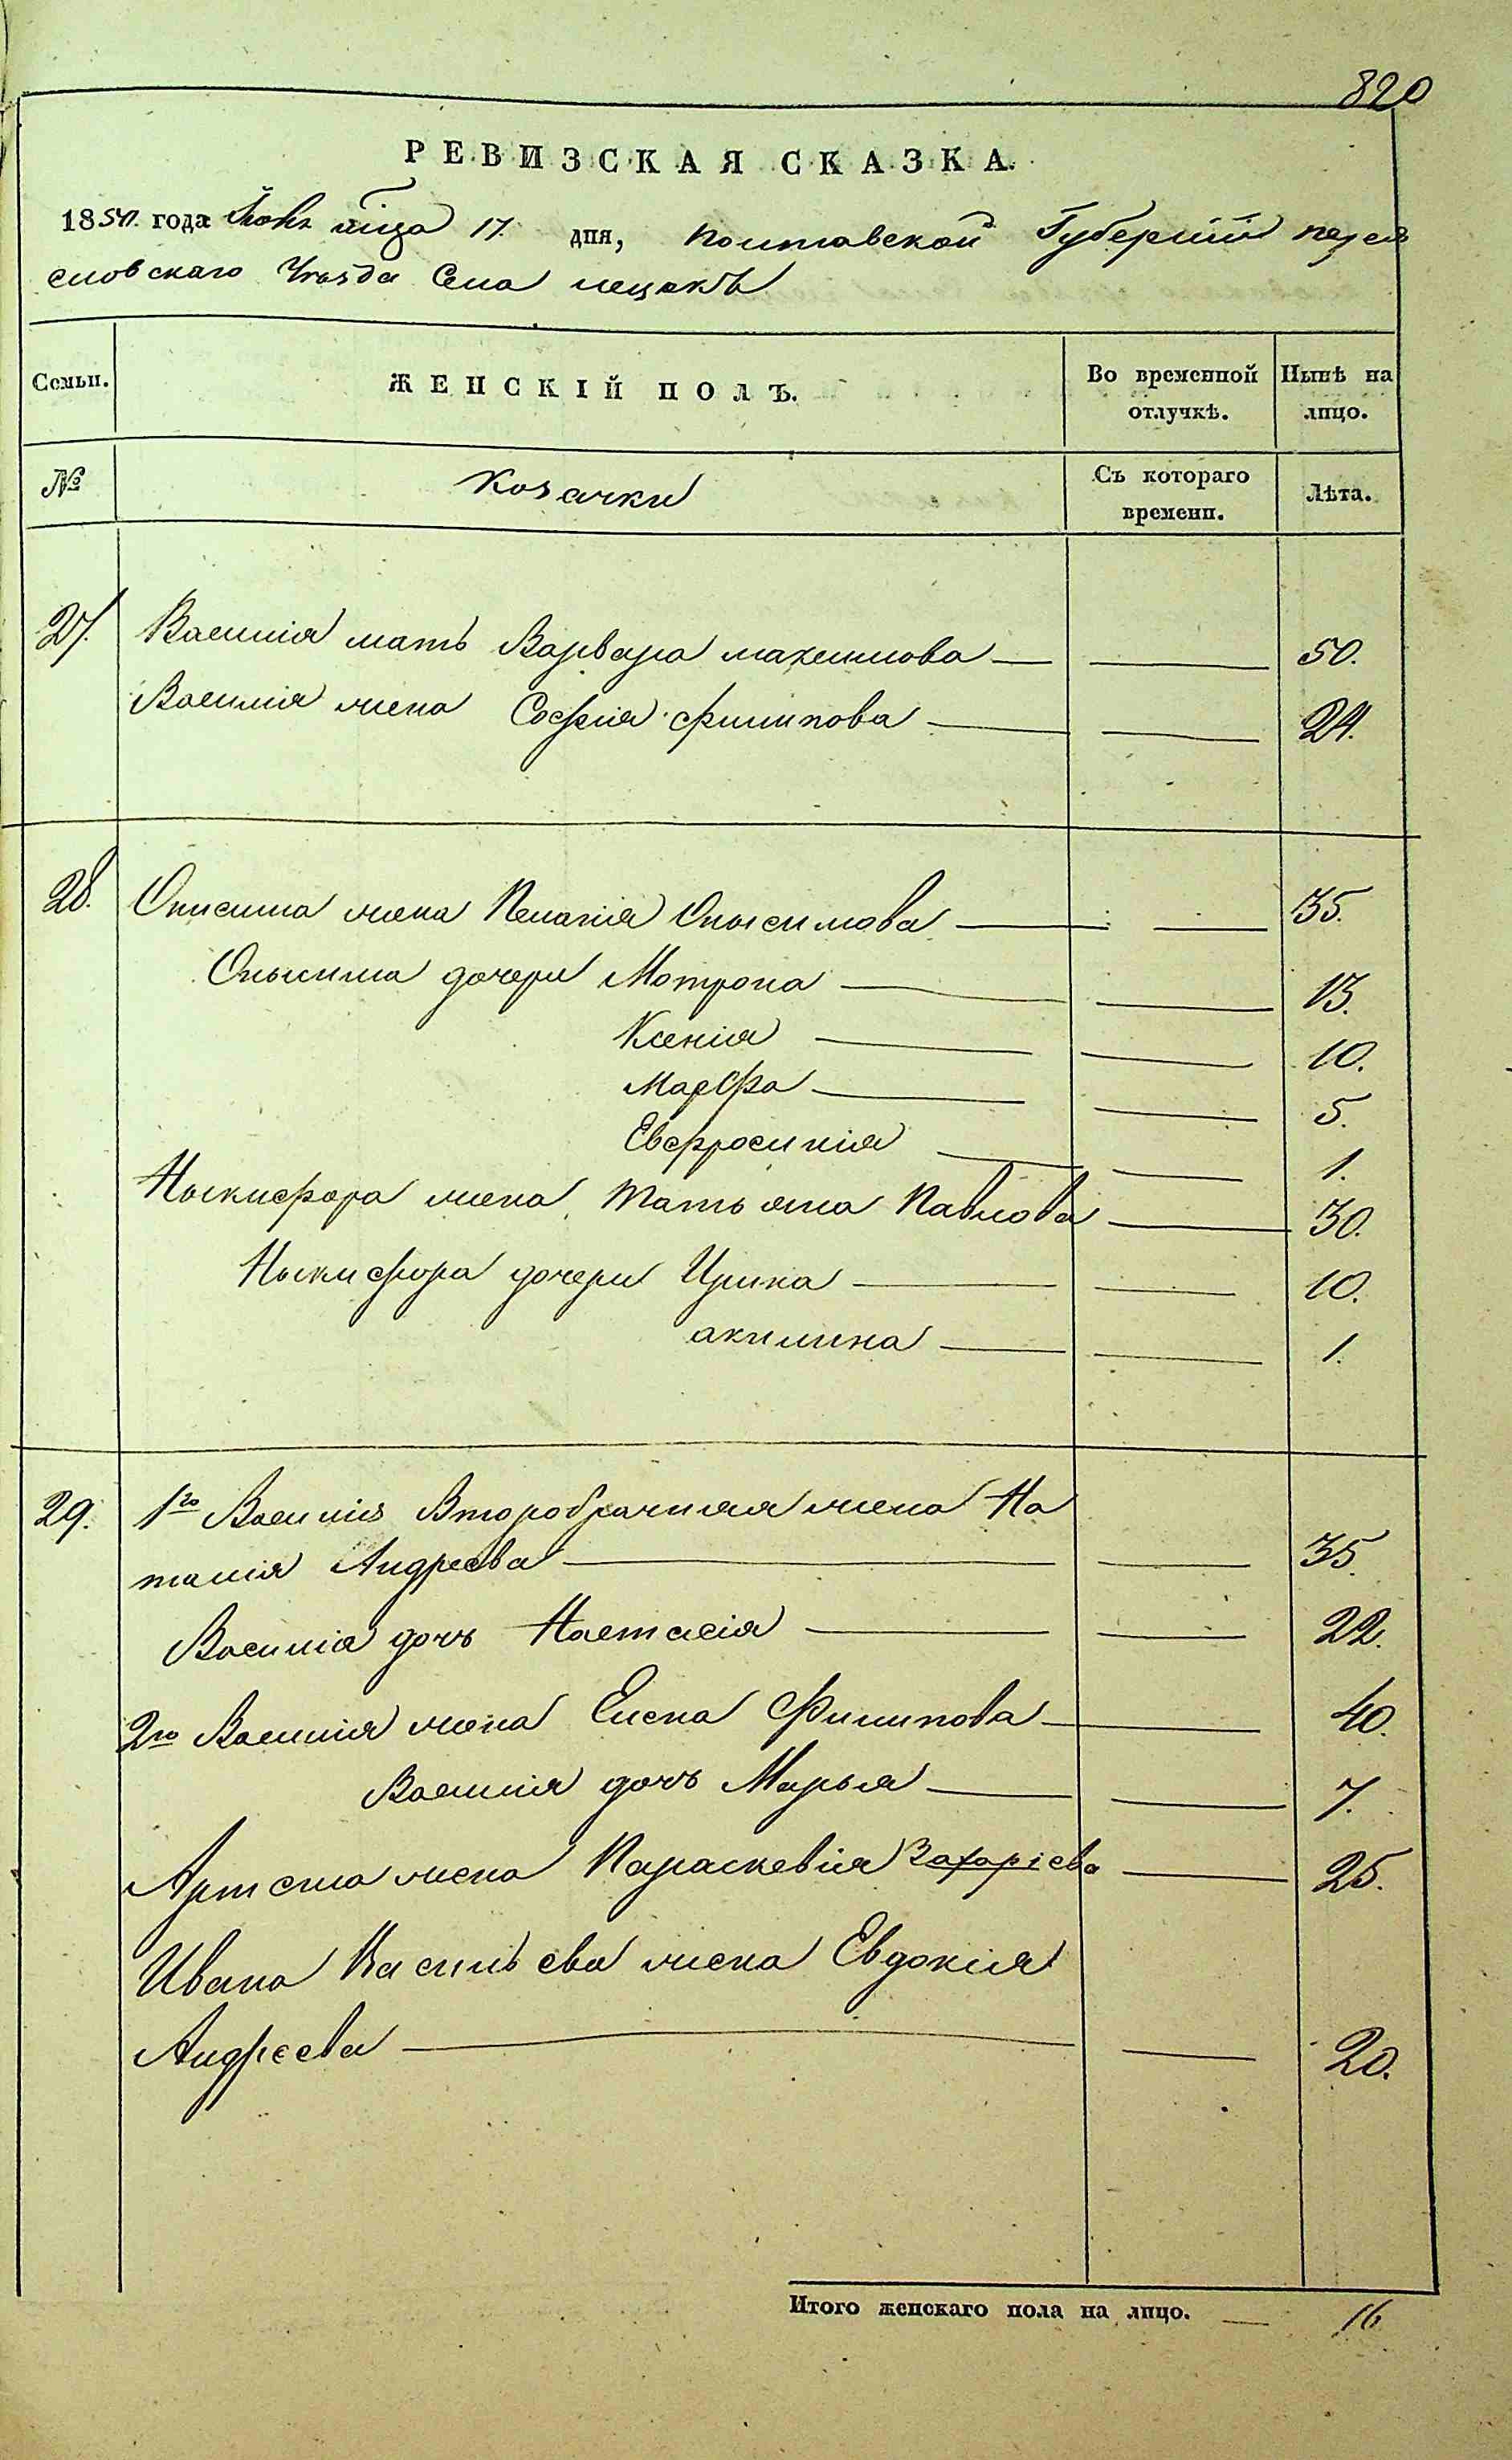 820
РЕВИЗСКАЯ СКАЗКА.
1850. года Июня мѣца 17. дня, Полтавской Губерніи переяс
словскаго Уѣзда Села лецокъ
Семьи. ЖЕНСКІЙ ПОЛЪ. Во временной отлучкѣ. Нынѣ на лицо.
№ Козачки Съ котораго времени. Лѣта.
27. Василія мать Варвара максимова — — 50.
Василія жена Софія филипова — — 24.
28. Онисима жена Пелагія Онысимова — — 35.
Онысима дочери Мотрона — — 13.
Ксенія — — 10.
Марфа — — 5.
Евфросинія — — 1.
Ныкифора жена Татьяна Павлова — 30.
Ныкифора дочери Ирина — — 10.
акилина — — 1.
29. 1го Василія Второбрачная жена На
талія Андреева — — 35.
Василія дочь Настасія — — 22.
2го Василія жена Елена Филипова — — 40.
Василія дочь Марья — — 7.
Артема жена Параскевія Захаріева — 25.
Ивана Васильева жена Евдокія
Андреева — — 20.
Итого женскаго пола на лицо. — 16